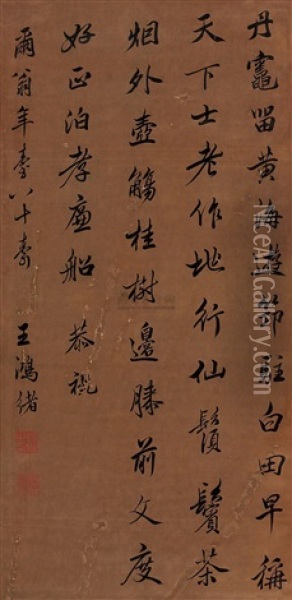 丹竈留黄海節駐白田早稱
天下士老作地行仙鬚鬢茶
烟外壺觴桂樹邊膝前文度
好正泊孝廉船 恭祝
爾翁年臺八十壽
王鴻緒
TOPofART.com